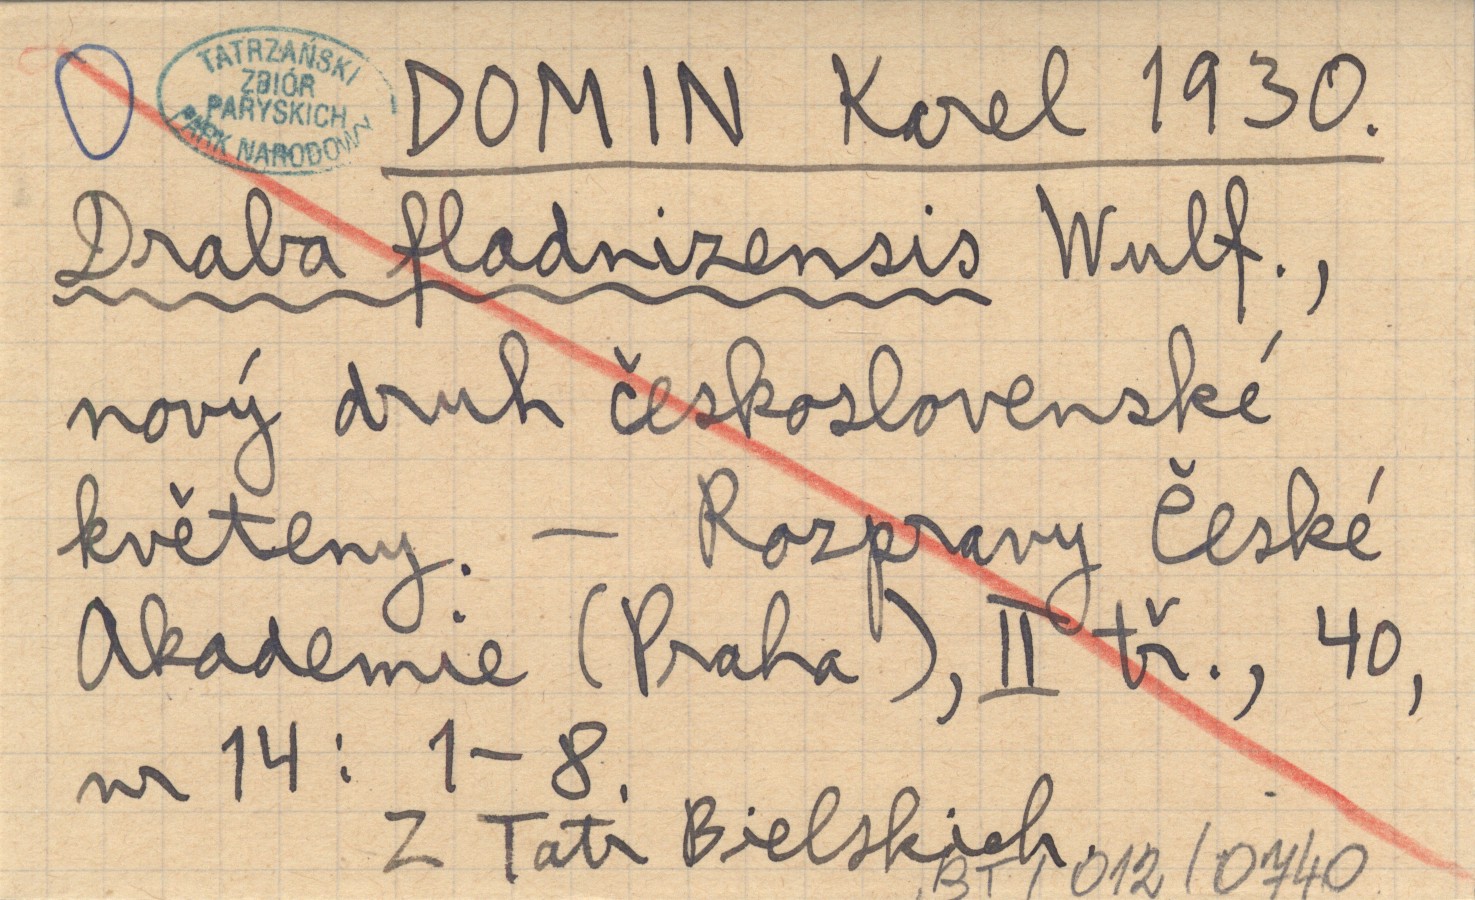 TATRZAŃSKI
ZBIÓR
PARYSKICH
PARK NARODOWY
DOMIN Karel 1930.
Draba fladnizensis Wulf.,
nový druh československé
květeny. — Rozpravy České
Akademie (Praha), II tř., 40,
nr 14: 1–8.
Z Tatr Bielskich.
BT/012/0740